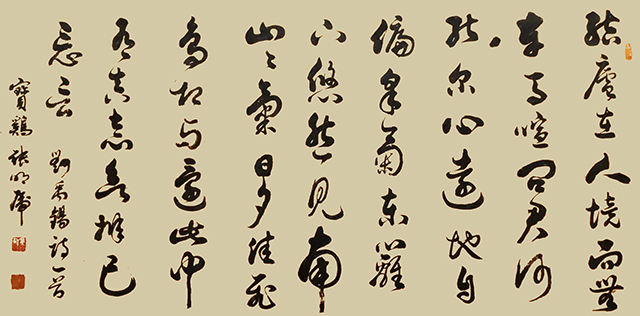 結廬在人境而無
車馬喧問君何
能尔心遠地自
偏采菊東籬
下悠然見南
山山氣日夕佳飛
鳥相与還此中
有真意欲辨已
忘言 劉禹錫詩一首
寶鷄張